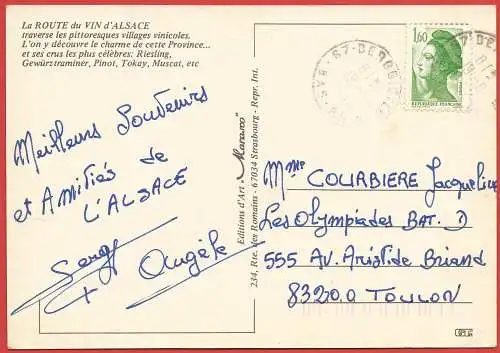 La ROUTE du VIN d'ALSACE
traverse les pittoresques villages vinicoles.
L'on y découvre le charme de cette Province...
et ses crus les plus célèbres: Riesling,
Gewürztraminer, Pinot, Tokay, Muscat, etc
Meilleurs Souvenirs
et Amitiés de
L'ALSACE
Serge
+ Angèle
Editions d'Art "Marasco"
234, Rte. des Romains - 67034 Strasbourg - Repr. Int.
67
1,60
REPUBLIQUE FRANÇAISE
Mme COURBIERE Jacqueline
Les Olympiades BAT. D
555 Av. Aristide Briand
83200 TOULON